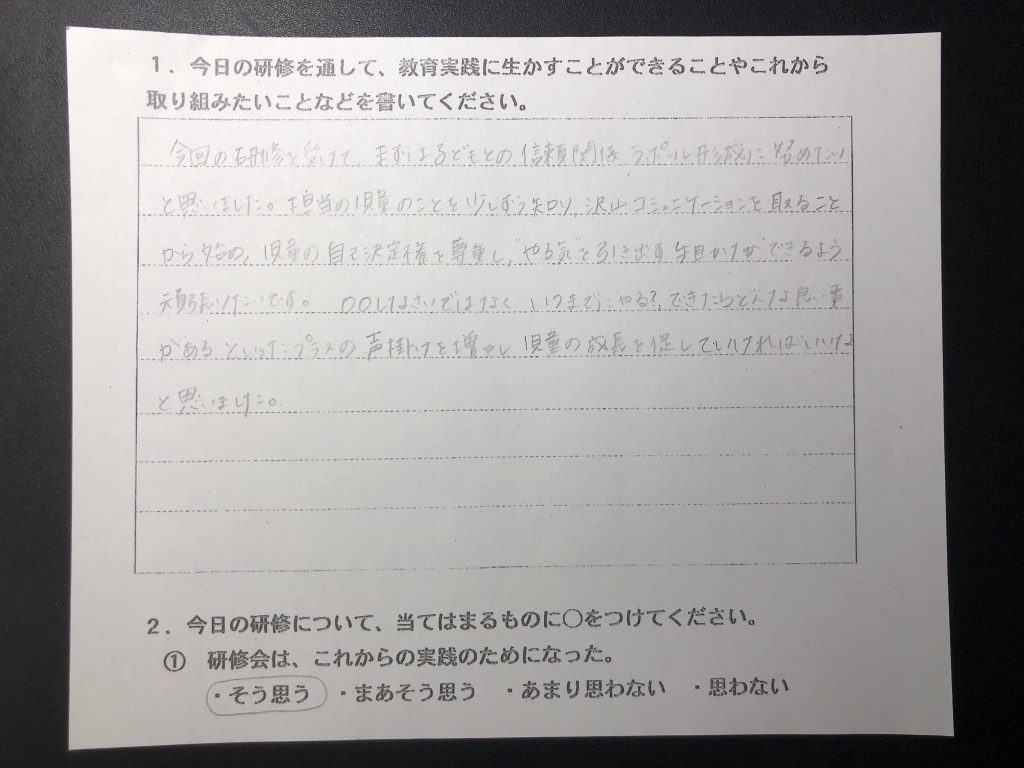 １．今日の研修を通して、教育実践に生かすことができることやこれから
取り組みたいことなどを書いてください。
今回の研修を受けて、まずは子どもとの信頼関係 ラポール形成に努めたい
と思いました。担当の児童のことを少しずつ知り、沢山コミュニケーションを取ること
から始め、児童の自己決定権を尊重し、"やる気"を引き出す 声かけができるよう
頑張りたいです。 〇〇しなさいではなく いつまでにやる？、できたらどんな良い事
があるといったプラスの声掛けを増やし 児童の成長を促していければいいな
と思いました。
２．今日の研修について、当てはまるものに〇をつけてください。
① 研修会は、これからの実践のためになった。
・そう思う ・まあそう思う ・あまり思わない ・思わない